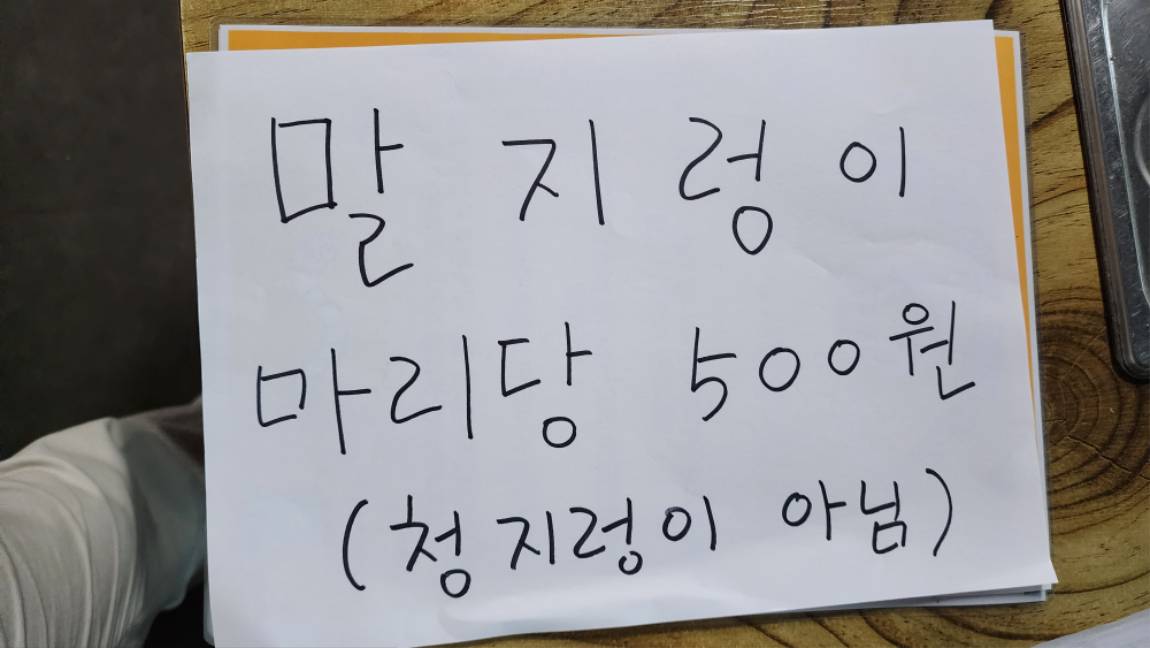 말 지 렁 이
마리당 500원
(청지렁이 아님)